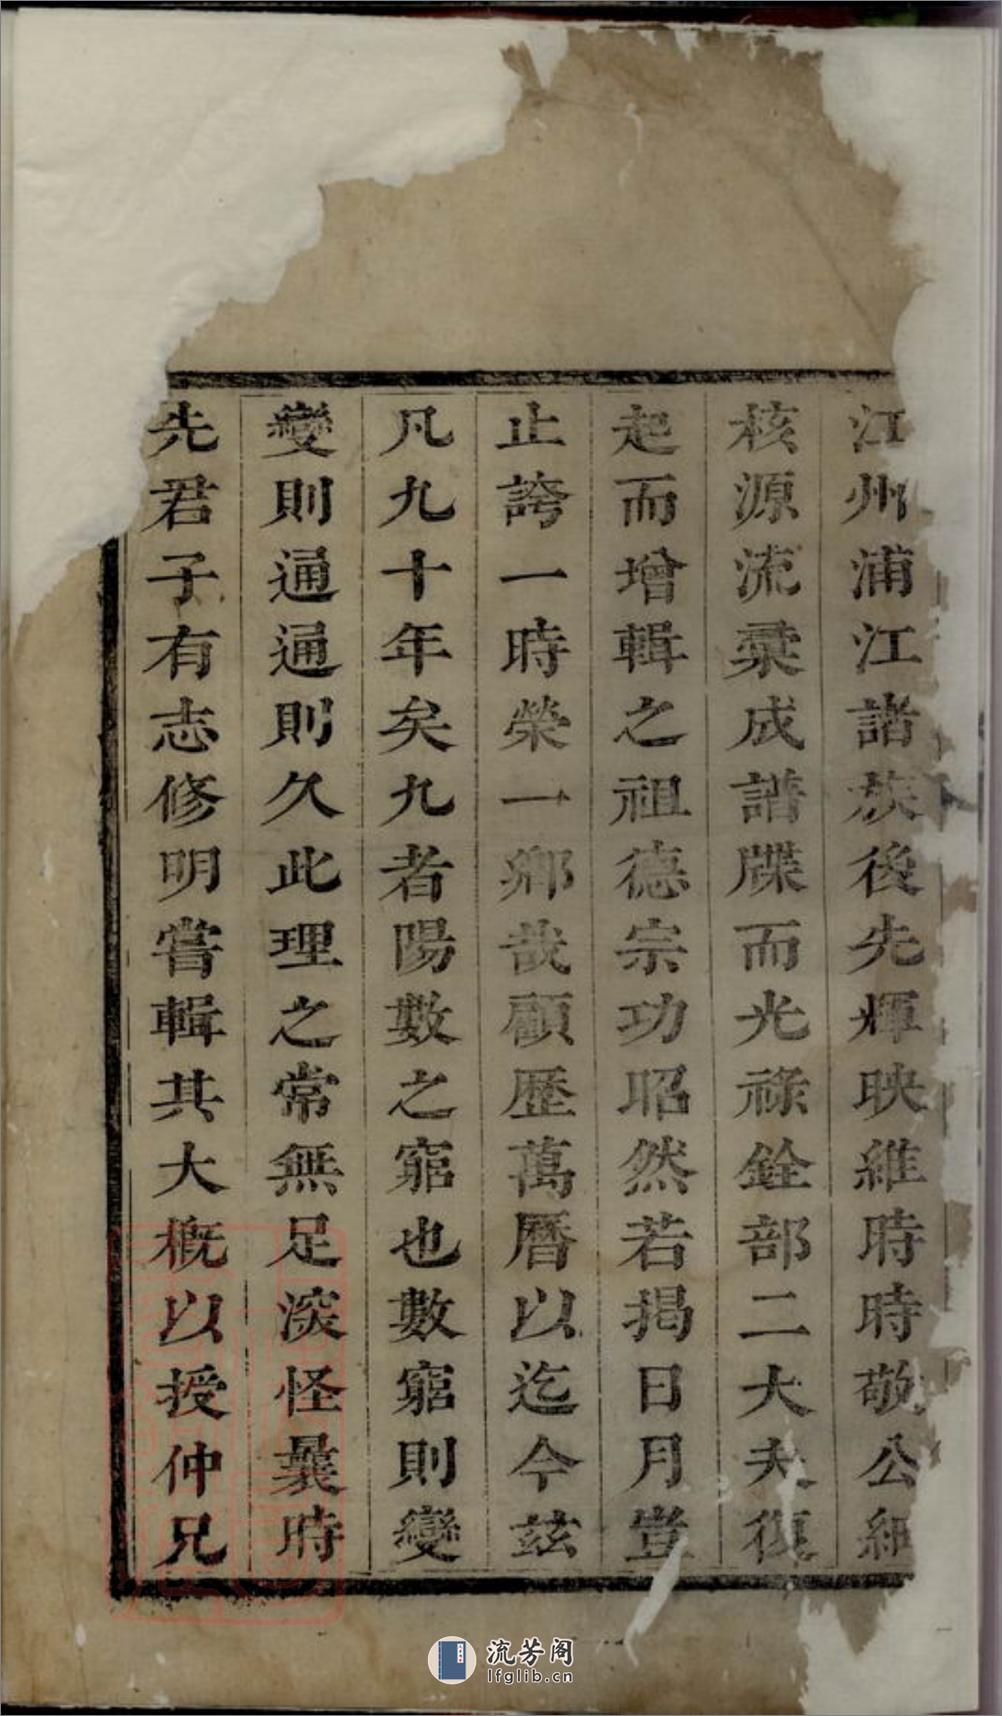 江州浦江諸族後先輝映維時時敬公細
核源流彚成譜牒而光祿銓部二大夫復
起而增輯之祖德宗功昭然若揭日月豈
止誇一時榮一鄉哉顧歷萬曆以迄今玆
凡九十年矣九者陽數之窮也數窮則變
變則通通則久此理之常無足深怪曩時
先君子有志修明嘗輯其大概以授仲兄
流芳阁
lfglib.cn